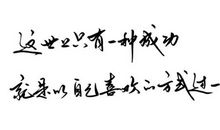 这世上只有一种成功
就是以自己喜欢的方式过一